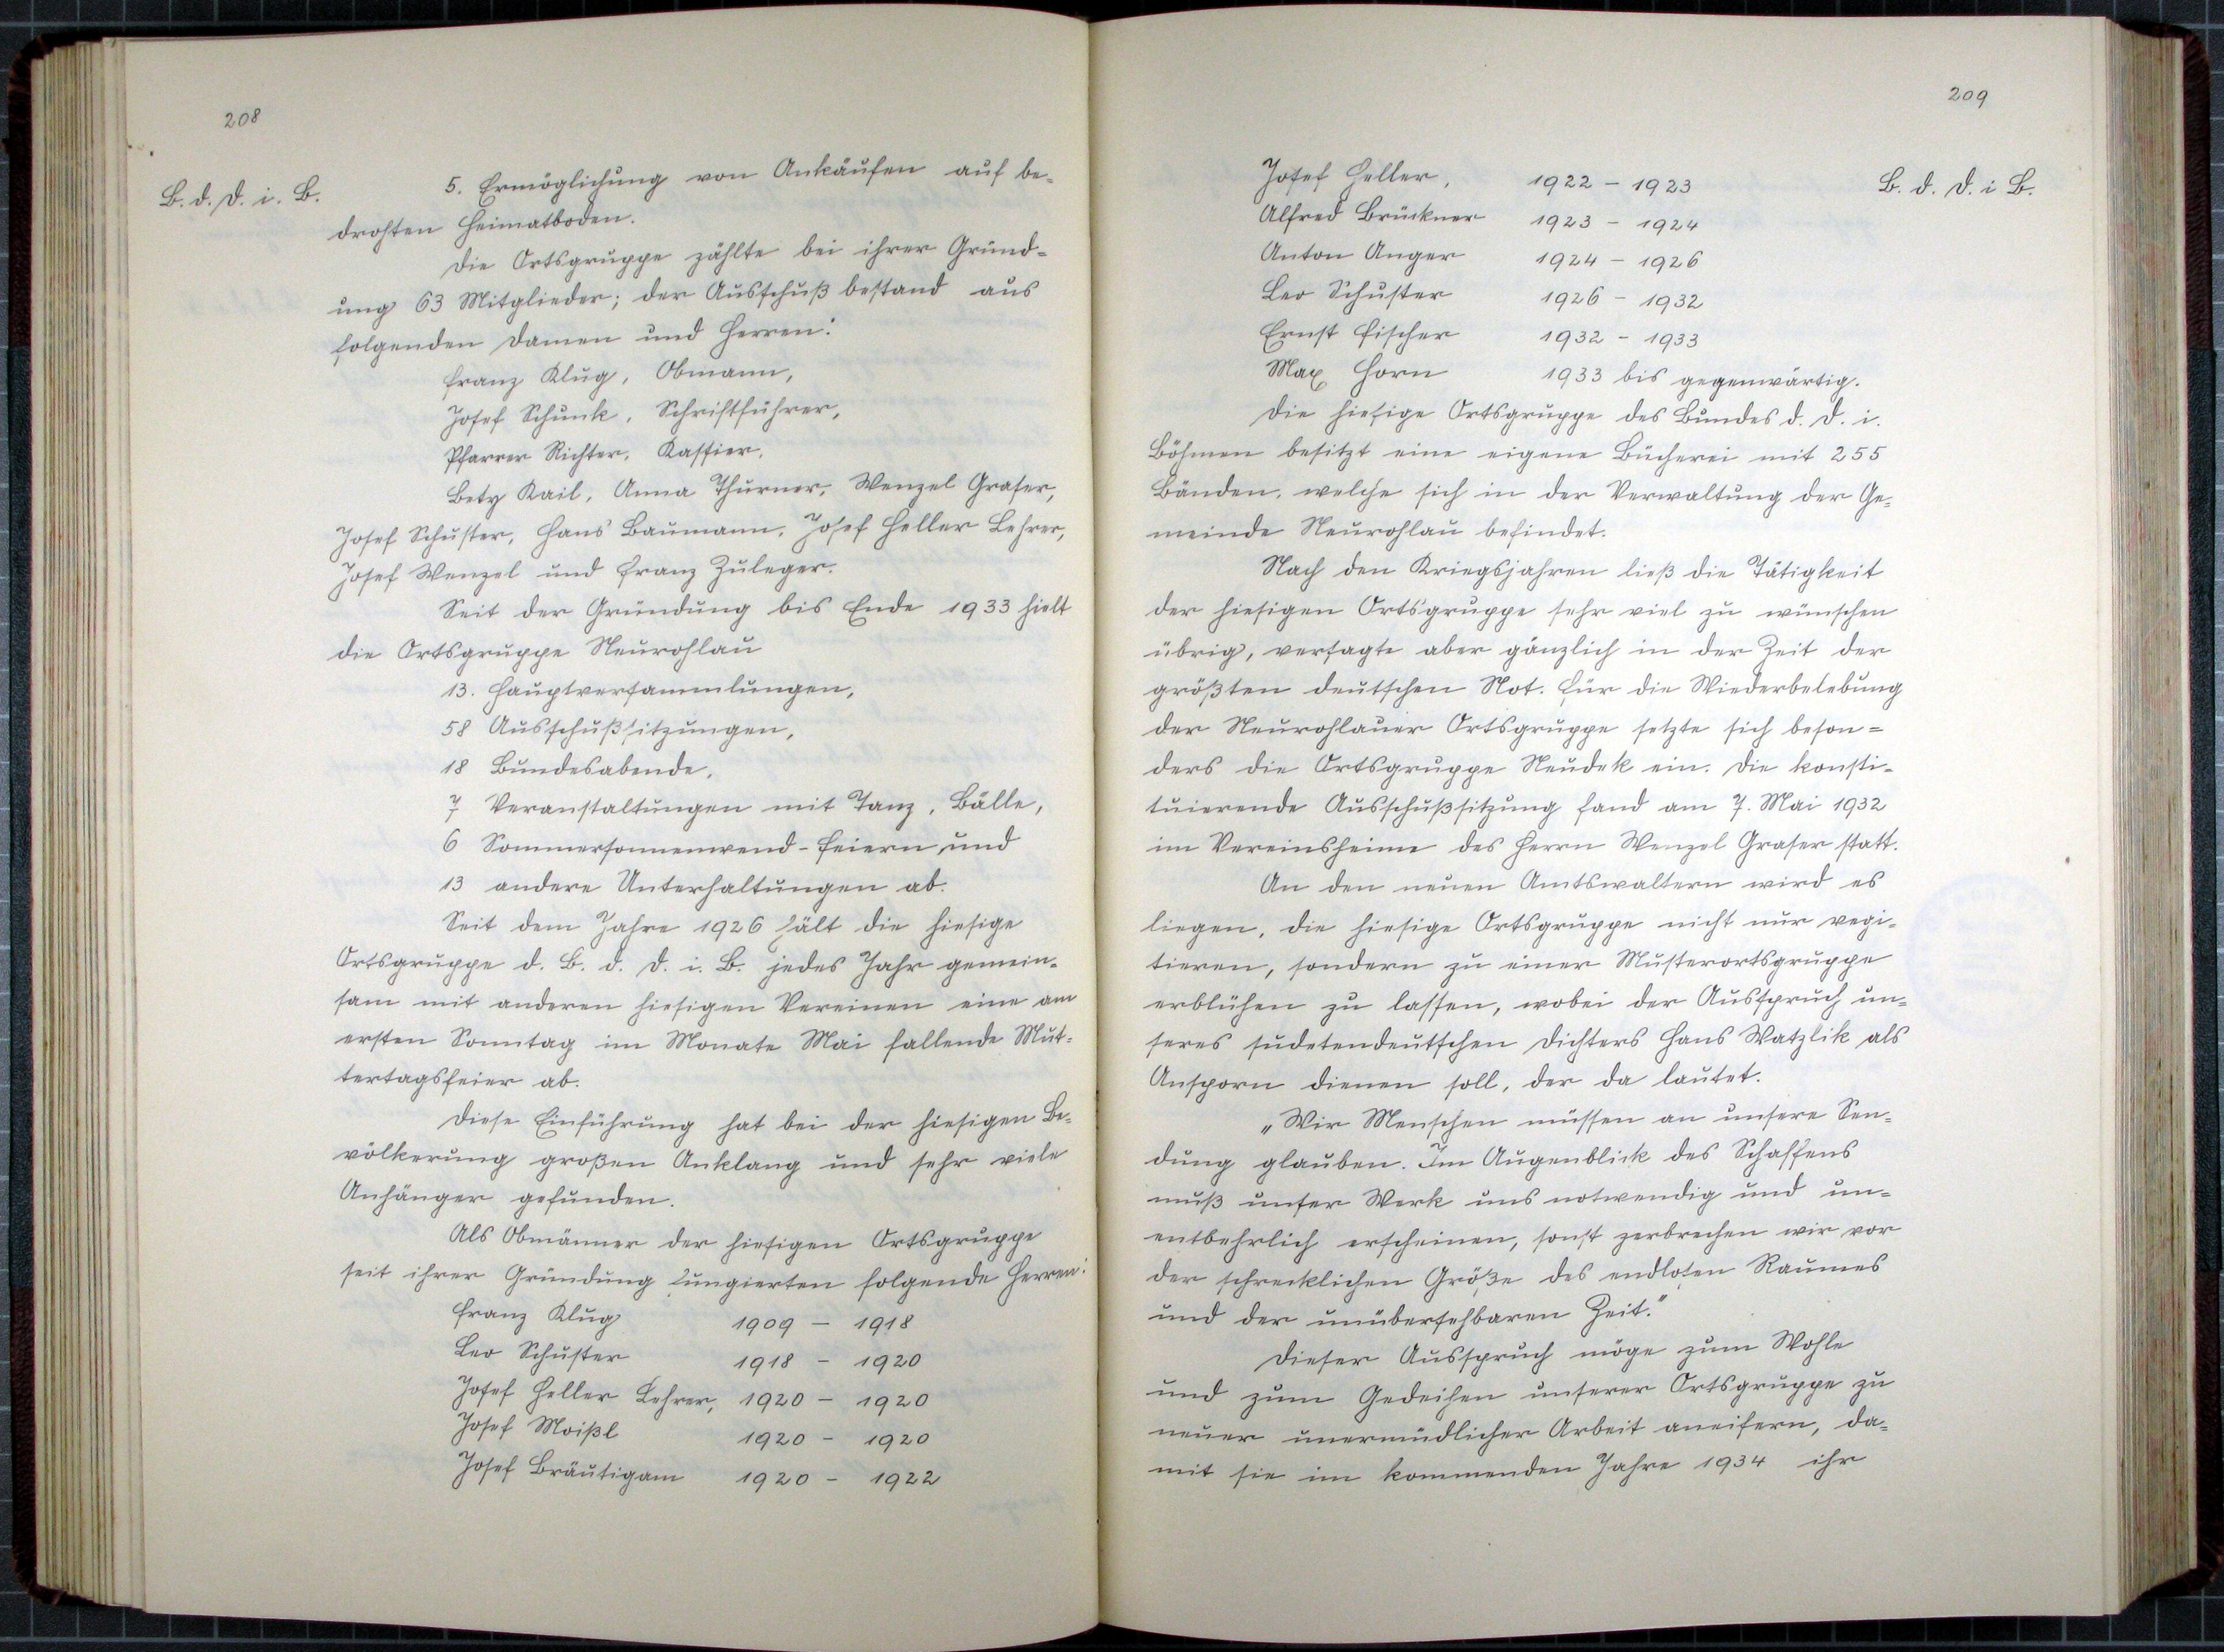 208
B. d. D. i. B.
5. Ermöglichung von Ankäufen auf be-
drohten Heimatboden.
Die Ortsgruppe zählte bei ihrer Gründ-
ung 63 Mitglieder; der Ausschuß bestand aus
folgenden Damen und Herren:
Franz Klug, Obmann,
Josef Schunk, Schriftführer,
Pfarrer Richter, Kassier,
Bety Kail, Anna Thurner, Wenzel Graser,
Josef Schuster, Hans Baumann, Josef Heller Lehrer,
Josef Wenzel und Franz Zuleger.
Seit der Gründung bis Ende 1933 hielt
die Ortsgruppe Neurohlau
13. Hauptversammlungen,
58 Ausschußsitzungen,
18 Bundesabende,
7 Veranstaltungen mit Tanz, Bälle,
6 Sommersonnenwend-Feiern und
13 andere Unterhaltungen ab.
Seit dem Jahre 1926 hält die hiesige
Ortsgruppe d. B. d. D. i. B. jedes Jahr gemein-
sam mit anderen hiesigen Vereinen eine am
ersten Sonntag im Monate Mai fallende Mut-
tertagsfeier ab.
Diese Einführung hat bei der hiesigen Be-
völkerung großen Anklang und sehr viele
Anhänger gefunden.
Als Obmänner der hiesigen Ortsgruppe
seit ihrer Gründung fungierten folgende Herren:
Franz Klug 1909 - 1918
Leo Schuster 1918 - 1920
Josef Heller Lehrer, 1920 - 1920
Josef Moißl 1920 - 1920
Josef Bräutigam 1920 - 1922
209
B. d. D. i B.
Josef Heller, 1922 - 1923
Alfred Brückner 1923 - 1924
Anton Anger 1924 - 1926
Leo Schuster 1926 - 1932
Ernst Fischer 1932 - 1933
Max Horn 1933 bis gegenwärtig.
Die hiesige Ortsgruppe des Bundes d. D. i.
Böhmen besitzt eine eigene Bücherei mit 255
Bänden, welche sich in der Verwaltung der Ge-
meinde Neurohlau befindet.
Nach den Kriegsjahren ließ die Tätigkeit
der hiesigen Ortsgruppe sehr viel zu wünschen
übrig, versagte aber gänzlich in der Zeit der
größten deutschen Not. Für die Wiederbelebung
der Neurohlauer Ortsgruppe setzte sich beson=
ders die Ortsgruppe Neudek ein. Die konsti-
tuierende Ausschußsitzung fand am 7. Mai 1932
im Vereinsheime des Herrn Wenzel Graser statt.
An den neuen Amtswaltern wird es
liegen, die hiesige Ortsgruppe nicht nur vegi-
tieren, sondern zu einer Musterortsgruppe
erblühen zu lassen, wobei der Ausspruch un-
seres sudetendeutschen Dichters Hans Watzlik als
Ansporn dienen soll, der da lautet.
„Wir Menschen müssen an unsere Sen-
dung glauben. Im Augenblick des Schaffens
muß unser Werk uns notwendig und un-
entbehrlich erscheinen, sonst zerbrechen wir vor
der schrecklichen Größe des endlosen Raumes
und der unübersehbaren Zeit."
Dieser Ausspruch möge zum Wohle
und zum Gedeihen unserer Ortsgruppe zu
neuer unermüdlicher Arbeit aneifern, da-
mit sie im kommenden Jahre 1934 ihr